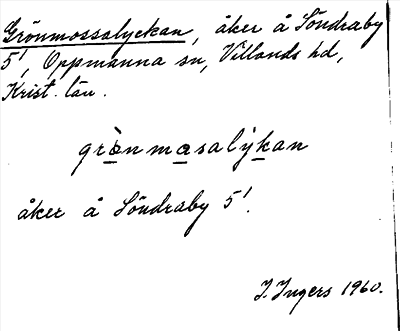 Grönmossalyckan, åker å Söndraby
5¹, Oppmanna sn, Villands hd,
Krist. län.
grò̱nma̱salýḵan
åker å Söndraby 5¹.
I. Ingers 1960.